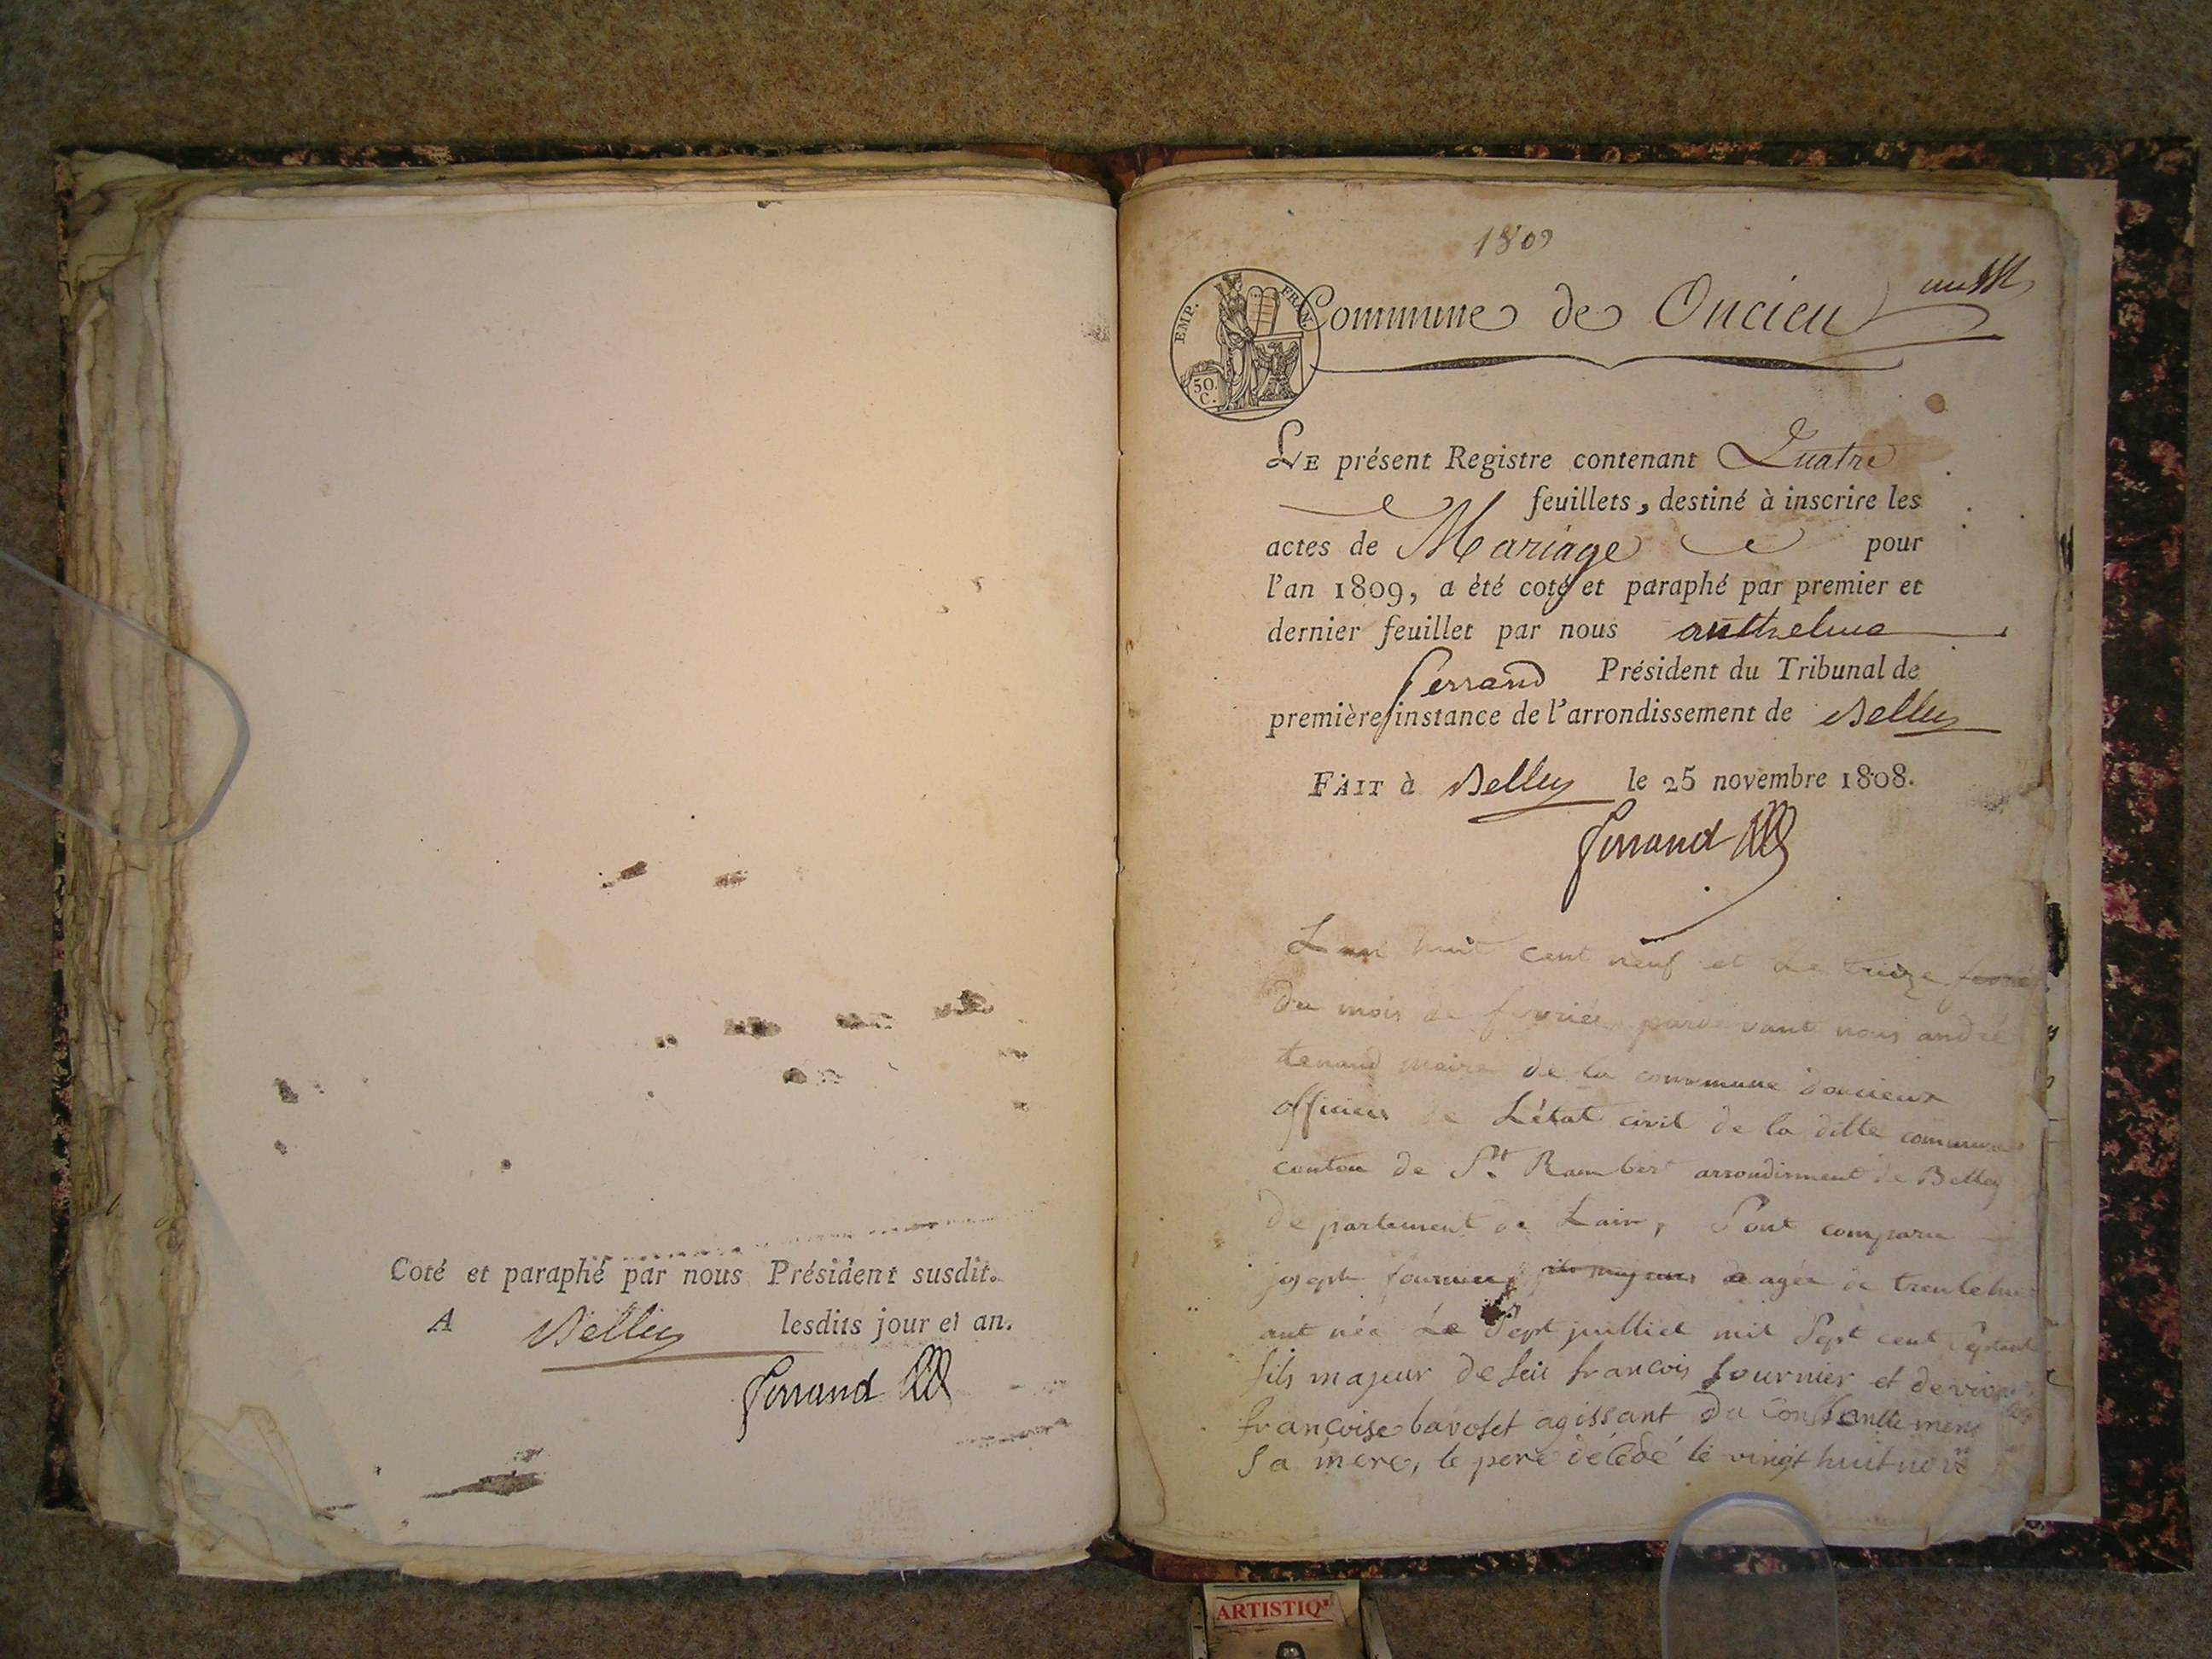 Coté et paraphé par nous Président susdit.
A Belley lesdits jour et an.
Ferrand
1809
EMP. FRAN.
50. C.
Commune de Oncieu
Le présent Registre contenant Quatre
feuillets, destiné à inscrire les
actes de Mariage pour
l'an 1809, a été coté et paraphé par premier et
dernier feuillet par nous anthelme
ferrand Président du Tribunal de
première instance de l'arrondissement de Belley
FAIT à Belley le 25 novembre 1808.
Ferrand
L'an huit cent neuf et le treize
du mois de fevrier pardevant nous andré
tenand maire de la commune doncieux
officier de L'état civil de la ditte commune
canton de St. Rambert arrondisment de Belley
departement de Lain, Sont comparu
joseph fournier agée de trente huit
ant née Le Sept julliet mil Sept cent Septante
fils majeur de feu francois fournier et de vivante
françoise bavoset agissant du Consentement
Sa mere, le pere décédé le vingt huit nov
ARTISTIQ